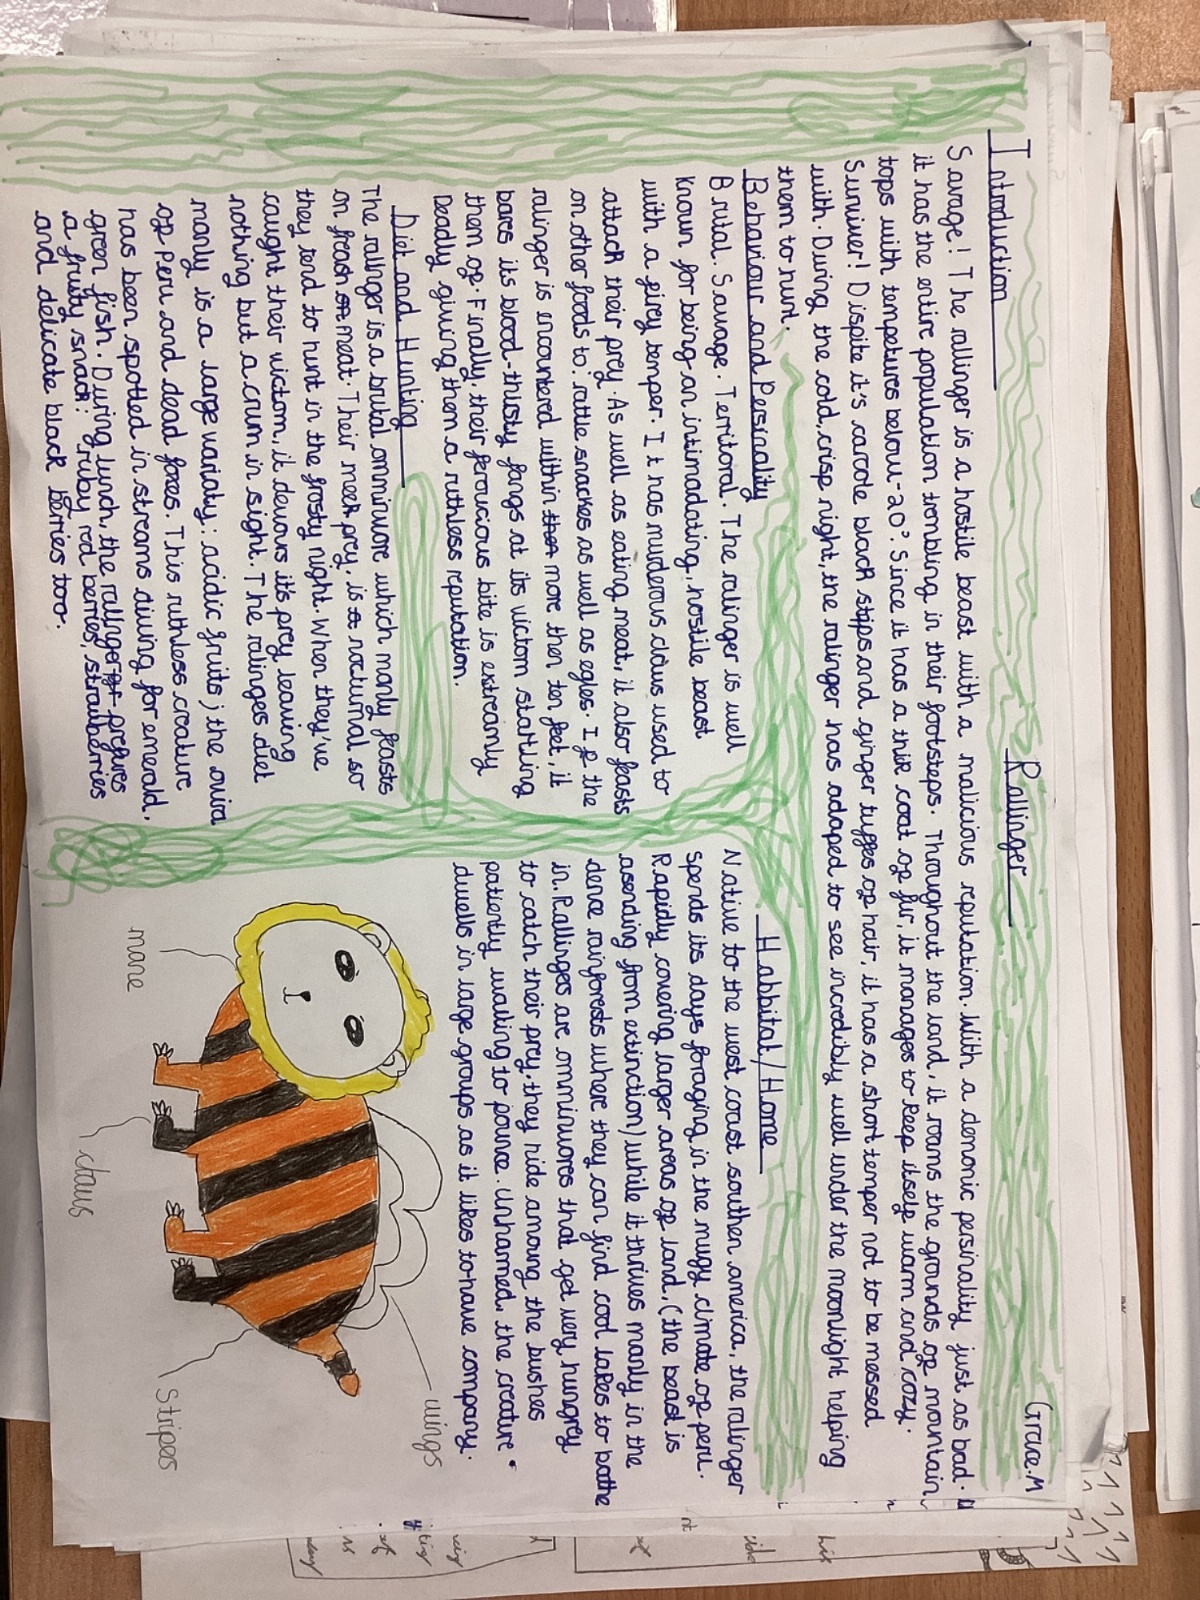 Rallinger
Grace.M
Introduction
Savage! The rallinger is a hostile beast with a malicious reputation. With a demonic persinality just as bad.
it has the entire population trembling in their footsteps. Throughout the land, it roams the grounds of mountain
tops with tempetures below -20°. Since it has a thik coat of fur, it manages to keep itself warm and cozy.
Surviver! Dispite it's carole black stips and ginger tuffes of hair, it has a short temper not to be messed
with. During the cold, crisp night, the ralinger has adaped to see incredibly well under the moonlight helping
them to hunt.
Behaviour and Persinality
Brutal. Savage. Territoral. The ralinger is well
known for being an intimadating, hostile beast
with a firey temper. It has murderous claws used to
attack their prey. As well as eating meat, it also feasts
on other foods to: rattle snackes as well as egles. If the
ralinger is incountered within more then ten feet, it
bares its blood-thisty fangs at its victom startling
them of. Finally, their ferocious bite is extreamly
Deadly giving them a ruthless reputation.
Diet and Hunting
The rallnger is a brutal omnivore which manly feasts
on freash meat. Their meek prey, is nocturnal so
they tend to hunt in the frosty night. When they've
caught their victom, it devours it's prey leaving
nothing but a crum in sight. The ralinges diet
manly is a large variaty: acidic fruits; the
of Peru and dead foxes. This ruthless creature
has been spotted in streams diving for emerald,
green fish. During lunch, the rallnger prefures
a fruity snack: ruby red berries, strawberries
and delicate black berries too.
Habbital/Home
Native to the west coast southen america, the ralinger
spends its days foraging in the mugy climate of peru.
Rapidly covering larger areas of land, (the beast is
asending from extinction) while it thrives manly in the
dence rainforests where they can find cool lakes to bathe
in. Rallinges are omnivores that get very hungrey
to catch their prey. they hide amoung the bushes
patiently waiting to pounce. Unharmed, the creature
duells in large groups as it likes to have company.
wings
mane
claws
Stripes